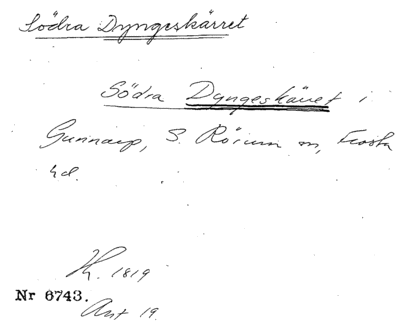 Södra Dyngeskärret
Södra Dyngeskärret i
Gunnarp, S. Rörum sn, Frosta
hd.
K. 1819
Nr 6743.
Ant 19.